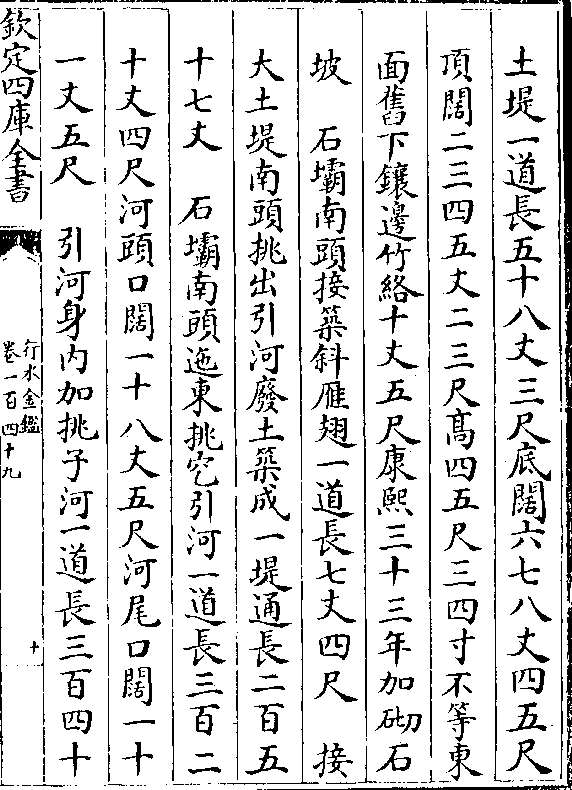 土堤一道長五十八丈三尺底闊六七八丈四五尺
頂闊二三四五丈二三尺髙四五尺三四寸不等東
面舊下鑲邊竹絡十丈五尺康熙三十三年加砌石
坡　石壩南頭接築斜雁翅一道長七丈四尺　接
大土堤南頭挑出引河廢土築成一堤通長二百五
十七丈　石壩南頭迤東挑挖引河一道長三百二
十丈四尺河頭口闊一十八丈五尺河尾口闊一十
一丈五尺　引河身内加挑子河一道長三百四十
欽定四庫全書
行水金鑑
卷一百四十九
十